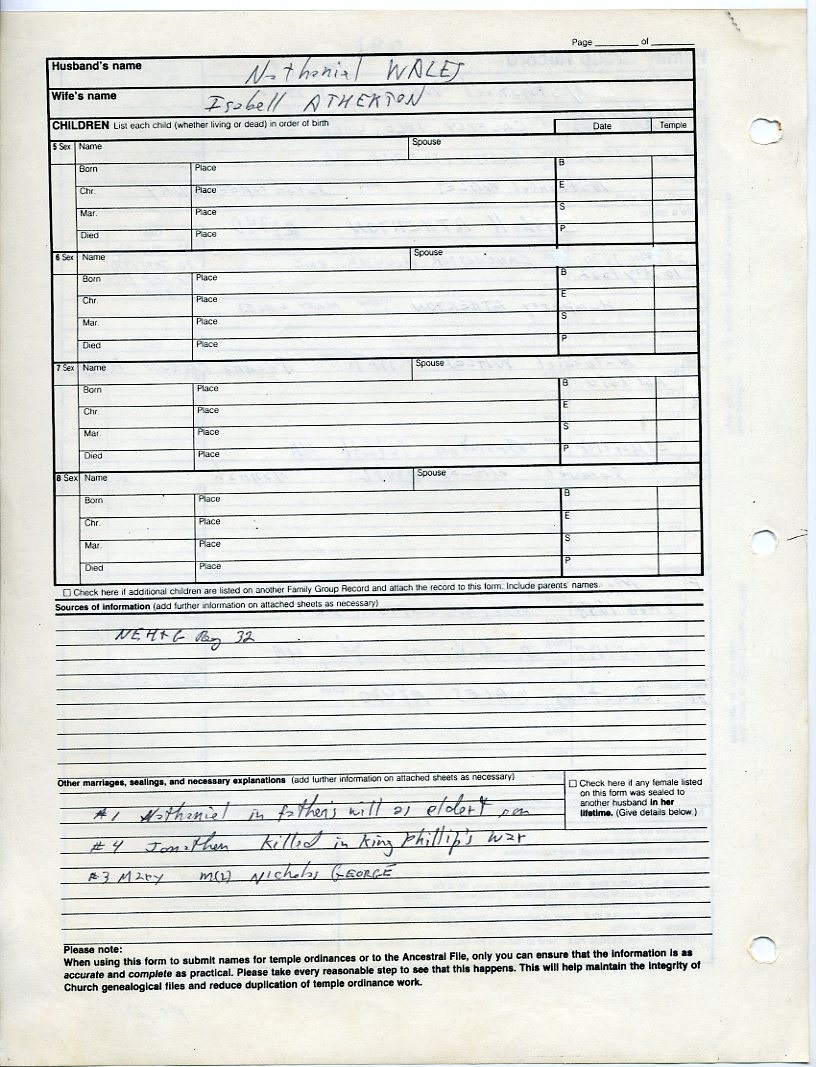 Page ______ of ______
Husband's name Nathaniel WALES
Wife's name Isabell ATHERTON
CHILDREN List each child (whether living or dead) in order of birth Date Temple
5 Sex Name Spouse
Born Place B
Chr. Place E
Mar. Place S
Died Place P
6 Sex Name Spouse
Born Place B
Chr. Place E
Mar. Place S
Died Place P
7 Sex Name Spouse
Born Place B
Chr. Place E
Mar. Place S
Died Place P
8 Sex Name Spouse
Born Place B
Chr. Place E
Mar. Place S
Died Place P
☐ Check here if additional children are listed on another Family Group Record and attach the record to this form. Include parents' names.
Sources of information (add further information on attached sheets as necessary)
NEH+G Reg 32
Other marriages, sealings, and necessary explanations (add further information on attached sheets as necessary)
☐ Check here if any female listed
on this form was sealed to
another husband in her
lifetime. (Give details below.)
#1 Nathaniel in father's will as eldert son
#4 Jonathen killed in King Phillip's War
#3 Mary m(2) Nicholas GEORGE
Please note:
When using this form to submit names for temple ordinances or to the Ancestral File, only you can ensure that the information is as
accurate and complete as practical. Please take every reasonable step to see that this happens. This will help maintain the integrity of
Church genealogical files and reduce duplication of temple ordinance work.